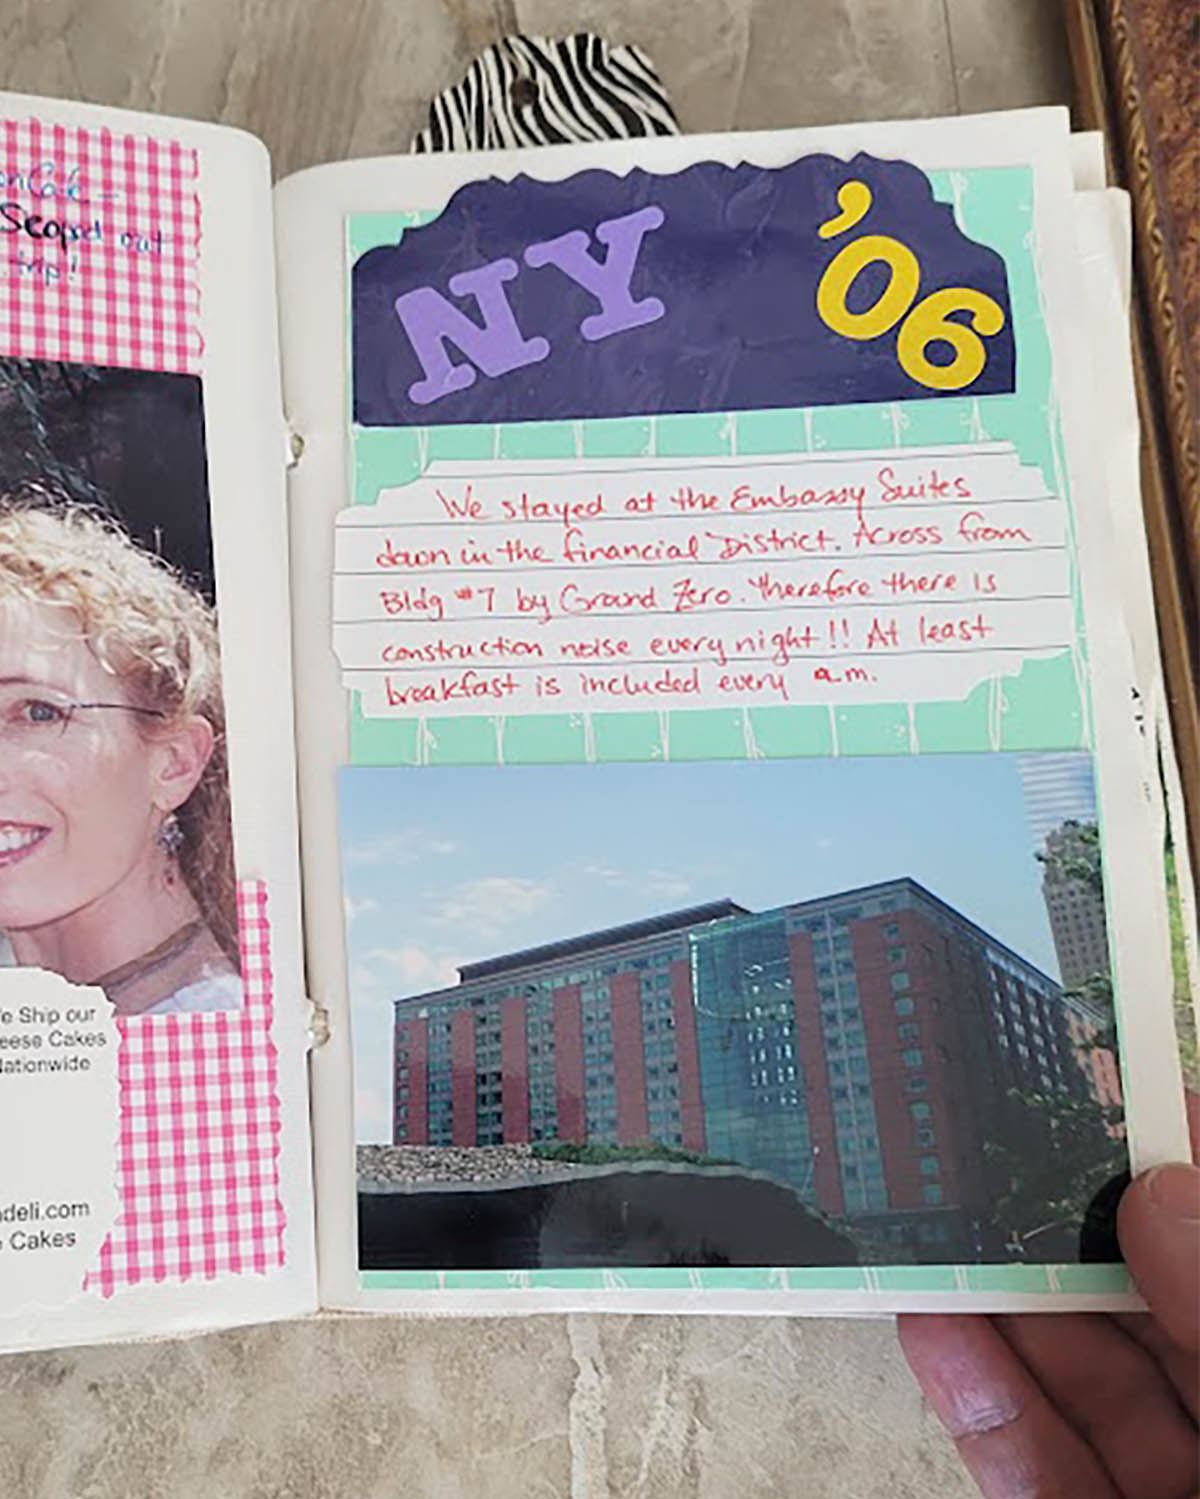 Scoped out
trip!
Ship our
Cakes
Nationwide
deli.com
Cakes
NY '06
We stayed at the Embassy Suites
down in the financial District. Across from
Bldg #7 by Ground Zero. therefore there is
construction noise every night!! At least
breakfast is included every a.m.